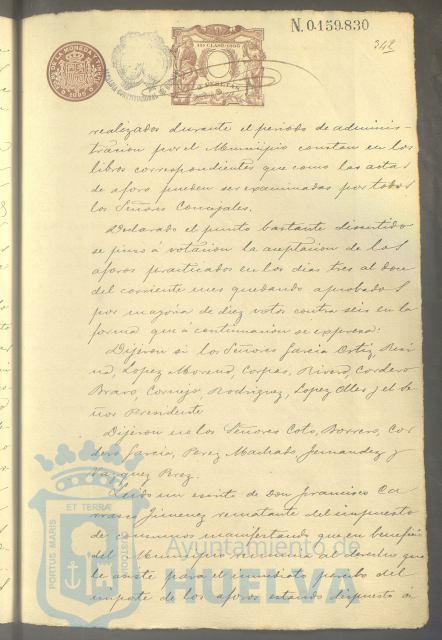 N. 0.159.830
342
11ª CLASE 1895
realizados durante el periodo de adminis-
tracion por el Municipio constan en los
libros correspondientes que como las actas
de aforo pueden ser examinadas por todos
los Señores Concejales.
Declarado el punto bastante discutido
se puso á votacion la aceptacion de los
aforos practicados en los dias tres al doce
del corriente mes quedando aprobados
por mayoria de diez votos contra seis en la
forma que á continuacion se expresa:
Dijeron si los Señores Garcia Ortiz,
Lopez Moreno, Corpas, Rivero, Cordero
Bravo, Cornejo, Rodriguez, Lopez y el Se-
ñor Presidente
Dijeron no los Señores Coto, Borrero, Cor
dero Garcia, Perez Machado, Fernandez y
Vazquez Perez.
Leido un escrito de Don Francisco
Jimenez rematante del impuesto
de consumos manifestando que en beneficio
del Municipio renuncia al derecho que
le asiste para el inmediato percibo del
importe de los aforos estando dispuesto á
PORTUS MARIS ET TERRAE CUSTODIA
Ayuntamiento de
HUELVA